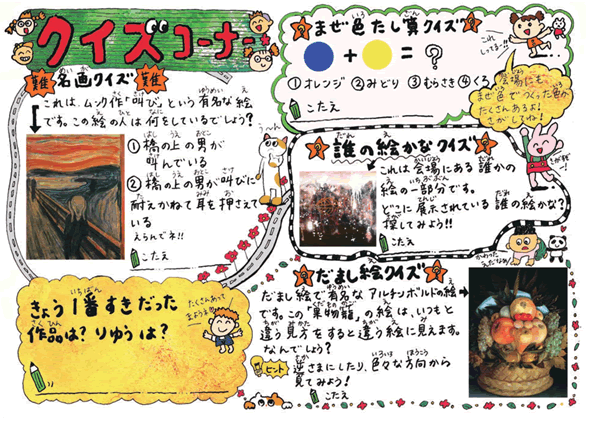 クイズコーナー
難 名画クイズ 難
これは、ムンク作「叫び」という有名な絵
です。この絵の人は何をしているでしょう?
①橋の上の男が
叫んでいる
②橋の上の男が叫びに
耐えかねて耳を押さえて
いる
えらんでネ!!
こたえ
う〜ん
きょう1番すきだった
作品は? りゆうは?
たくさんあって
まようよ〜
まぜ色たし算クイズ
+ = ?
①オレンジ ②みどり ③むらさき ④くろ
こたえ
これ
しってる!!
会場にも、
まぜ色でつくった色が
たくさんあるよ!
さがしてね!
誰の絵かなクイズ
これは会場にある誰かの
絵の一部分です。
どこに展示されている誰の絵かな?
探してみよう!!
こたえ
かわった
えだなぁ
だまし絵クイズ
だまし絵で有名なアルチンボルドの絵
です。この「果物籠」の絵は、いつもと
違う見方をすると違う絵に見えます。
なんでしょう?
ヒント 逆さまにしたり、色々な方向から
見てみよう!
こたえ